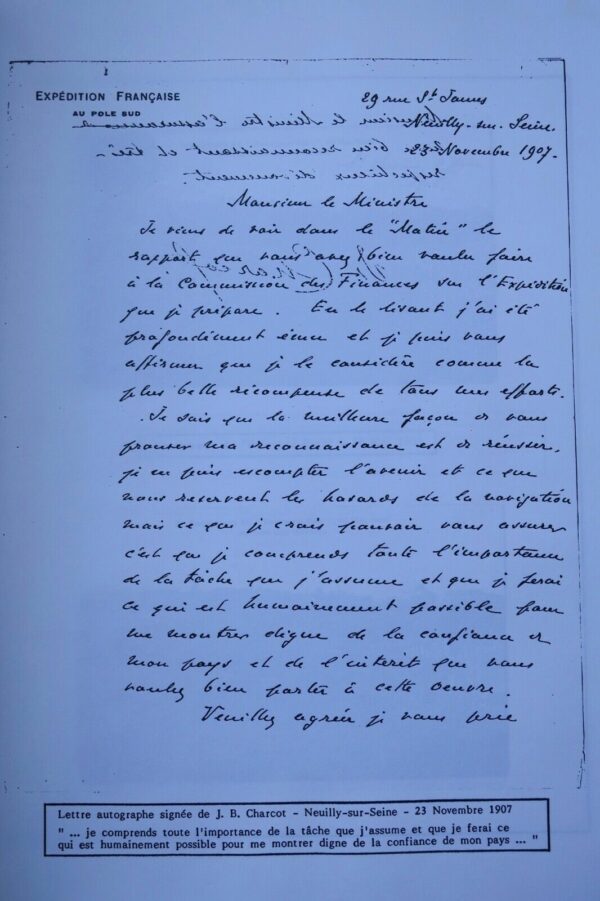 EXPÉDITION FRANÇAISE
AU POLE SUD
29 rue St James
Neuilly-sur-Seine.
23 Novembre 1907.
Monsieur le Ministre
Je viens de voir dans le "Matin" le
rapport que vous avez bien voulu faire
à la Commission des Finances sur l'Expédition
que je prépare. En le lisant j'ai été
profondément ému et je puis vous
affirmer que je le considère comme la
plus belle récompense de tous mes efforts.
Je sais que la meilleure façon de vous
prouver ma reconnaissance est de réussir,
je ne puis escompter l'avenir et ce que
nous reservent les hasards de la navigation
mais ce que je crois pouvoir vous assurer
c'est que je comprends toute l'importance
de la tâche que j'assume et que je ferai
ce qui est humainement possible pour
me montrer digne de la confiance de
mon pays et de l'intérêt que vous
voulez bien porter à cette oeuvre.
Veuillez agréer je vous prie
Lettre autographe signée de J. B. Charcot - Neuilly-sur-Seine - 23 Novembre 1907
" ... je comprends toute l'importance de la tâche que j'assume et que je ferai ce
qui est humainement possible pour me montrer digne de la confiance de mon pays ... "